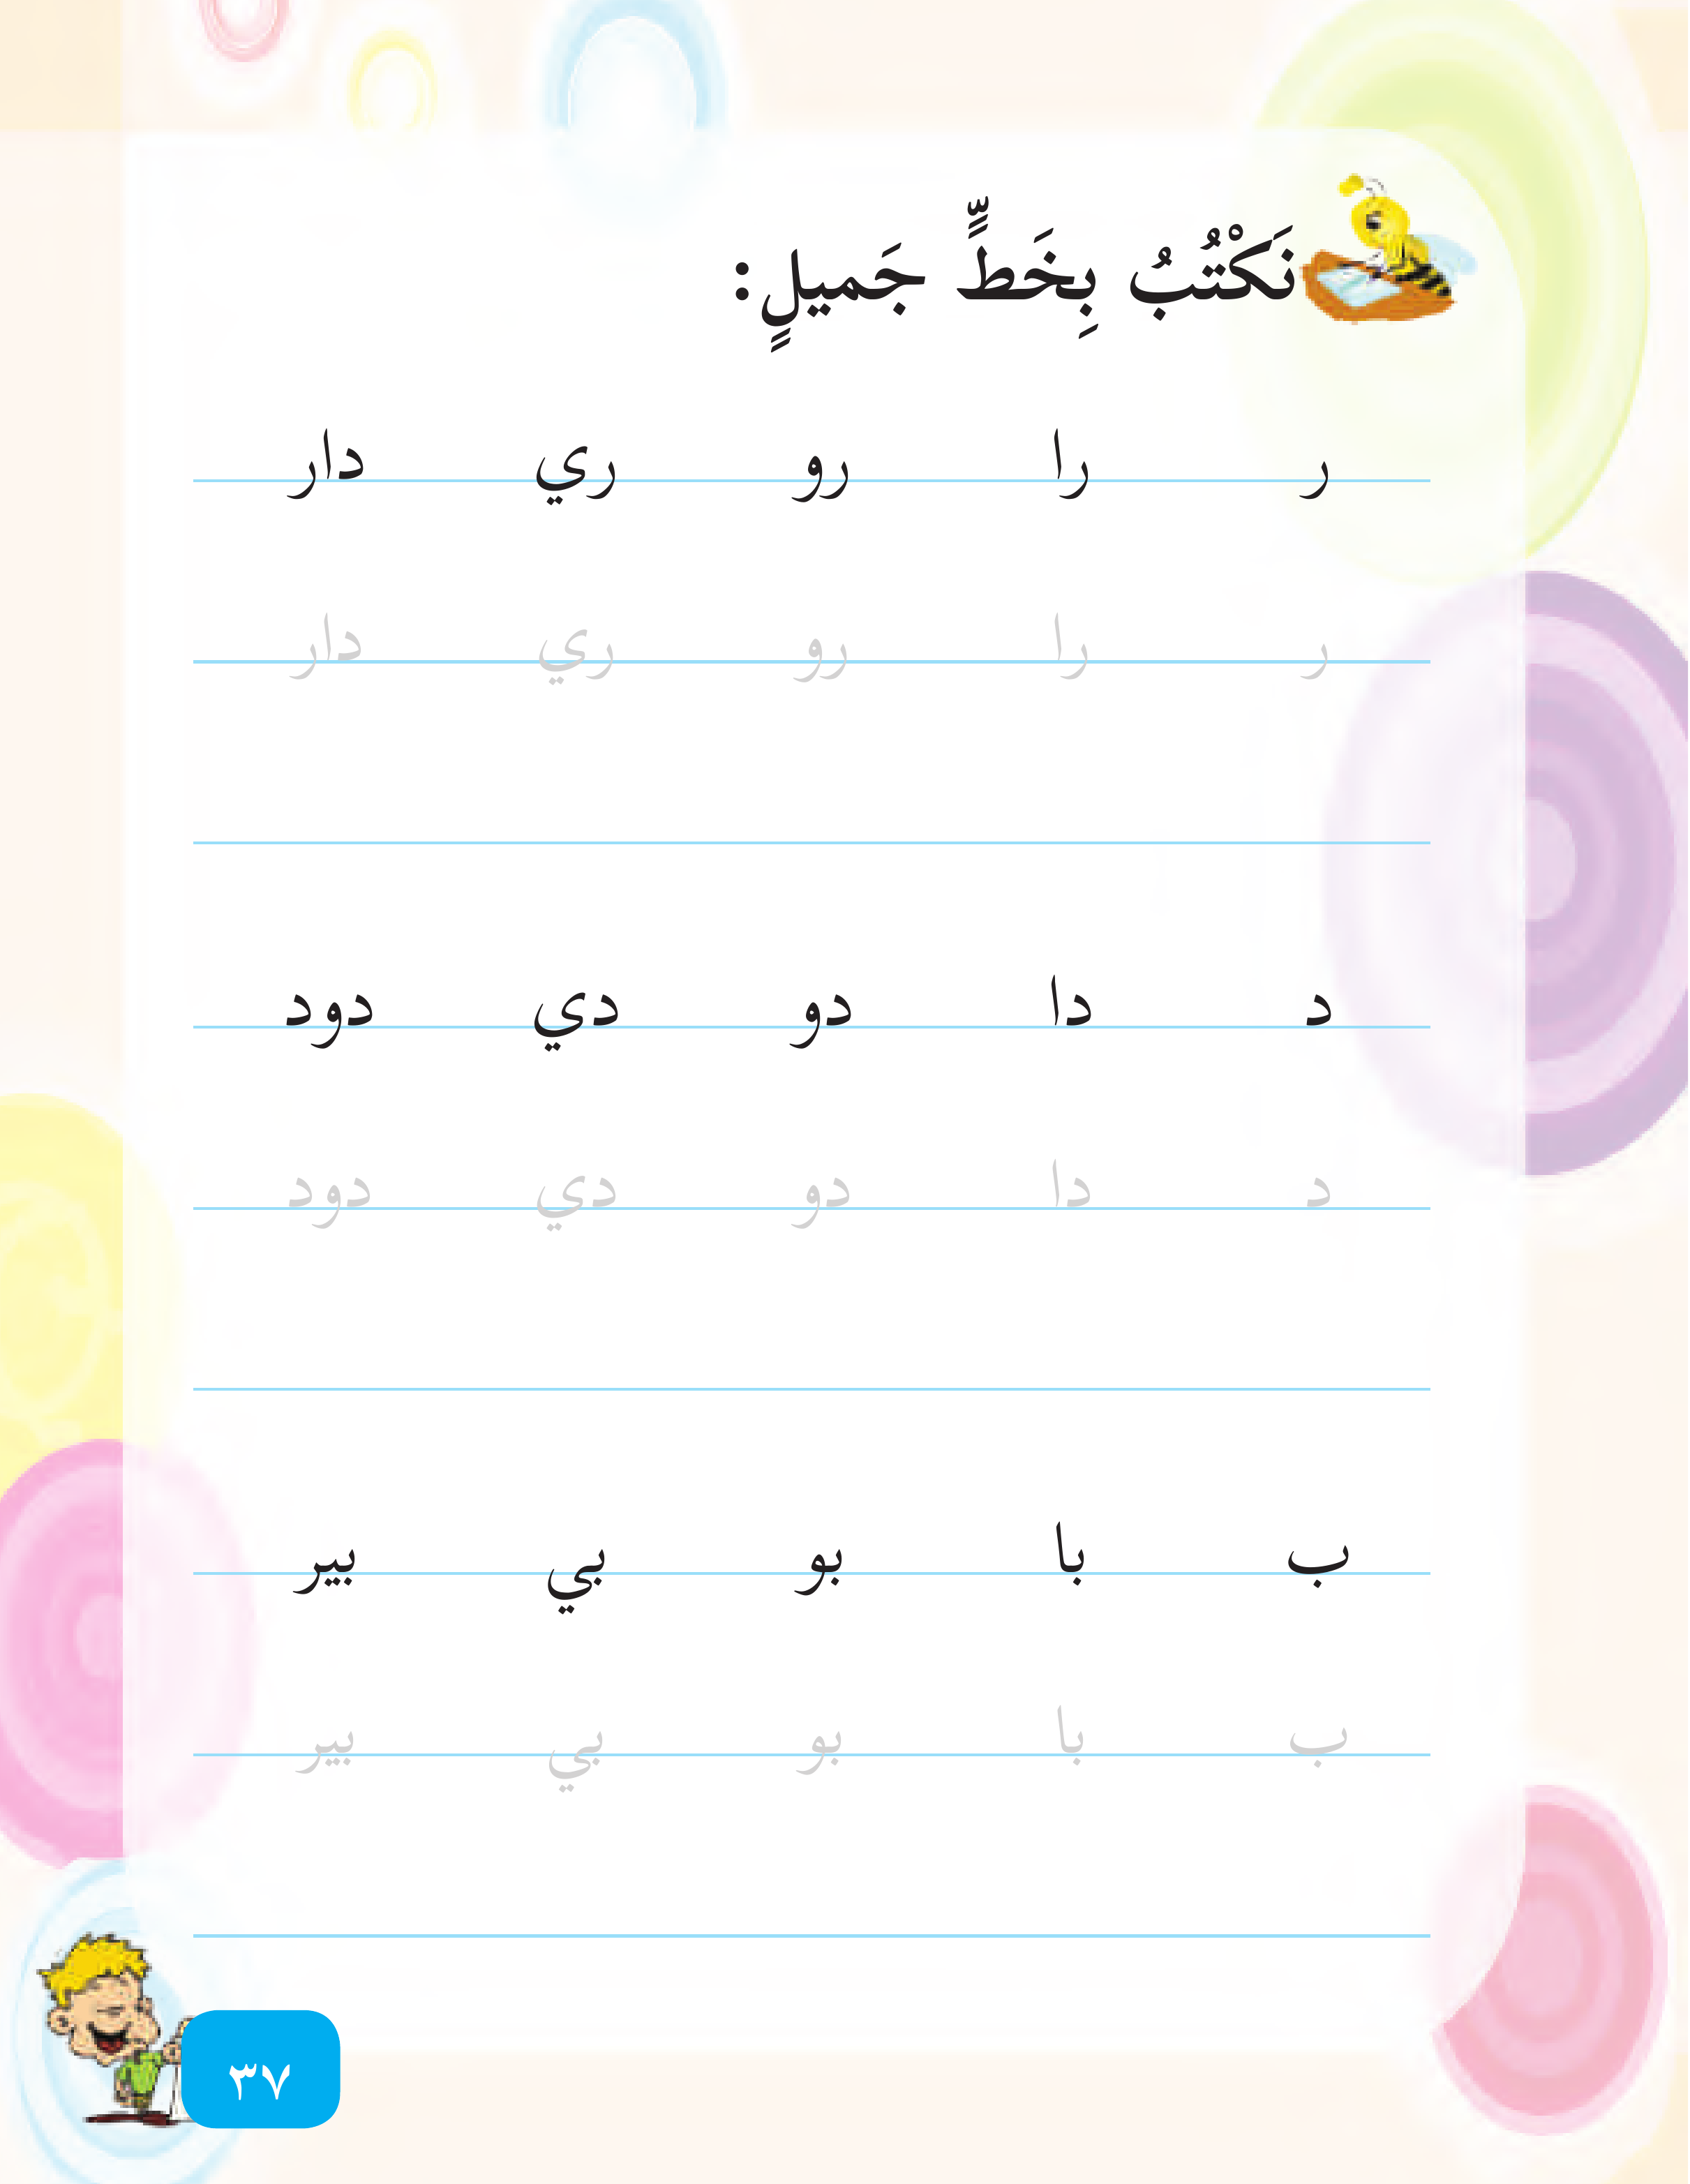 نَكْتُبُ بِخَطٍّ جَميلٍ:
ر را رو ري دار
ر را رو ري دار
د دا دو دي دود
د دا دو دي دود
ب با بو بي بير
ب با بو بي بير
٣٧